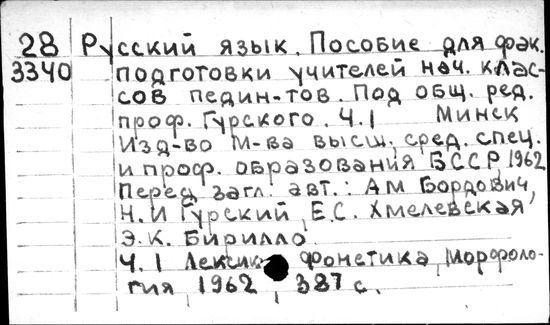 28 Русский язык. Пособие для фак.
3340 подготовки учителей нач. клас-
сов педин-тов. Под общ. ред.
проф. Гурского. Ч.1 Минск
Изд-во М-ва высш., сред. спец.
и проф. образования БССР, 1962
Перед загл. авт.: А.М Бордович,
Н.И Гурский, Е.С. Хмелевская,
Э.К. Бирилло.
Ч.1 Лексика фонетика, морфоло-
гия, 1962, 387 с.